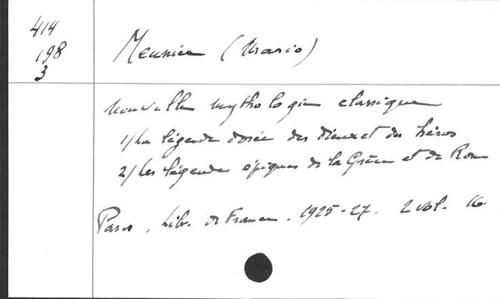 414
198
3
Meunier (Mario)
Nouvelle mythologie classique
1/ La légende dorée des Dieux et des héros
2/ Les légendes épiques de la Grèce et de Rome
Paris, Libr. de France. 1925-27. 2 vol. 16